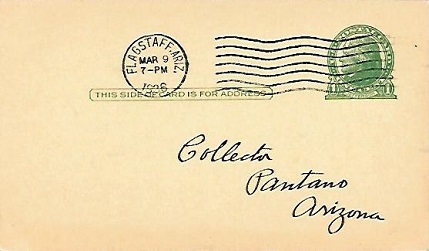 FLAGSTAFF, ARIZ.
MAR 9
7-PM
THIS SIDE OF CARD IS FOR ADDRESS
Collector
Pantano
Arizona